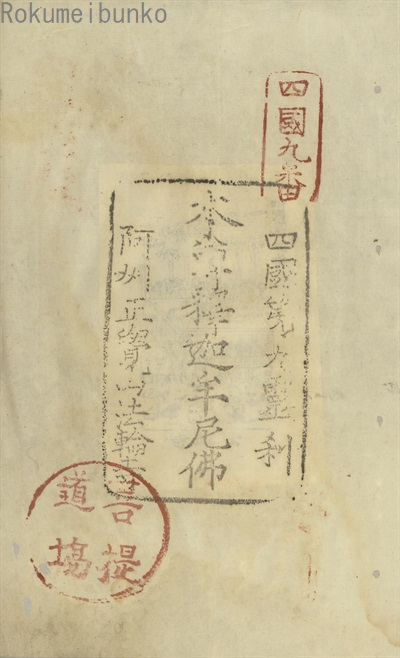 Rokumeibunko
四國九番
四國第九靈刹
本尊釋迦牟尼佛
阿州正覺山法輪寺
菩提
道場